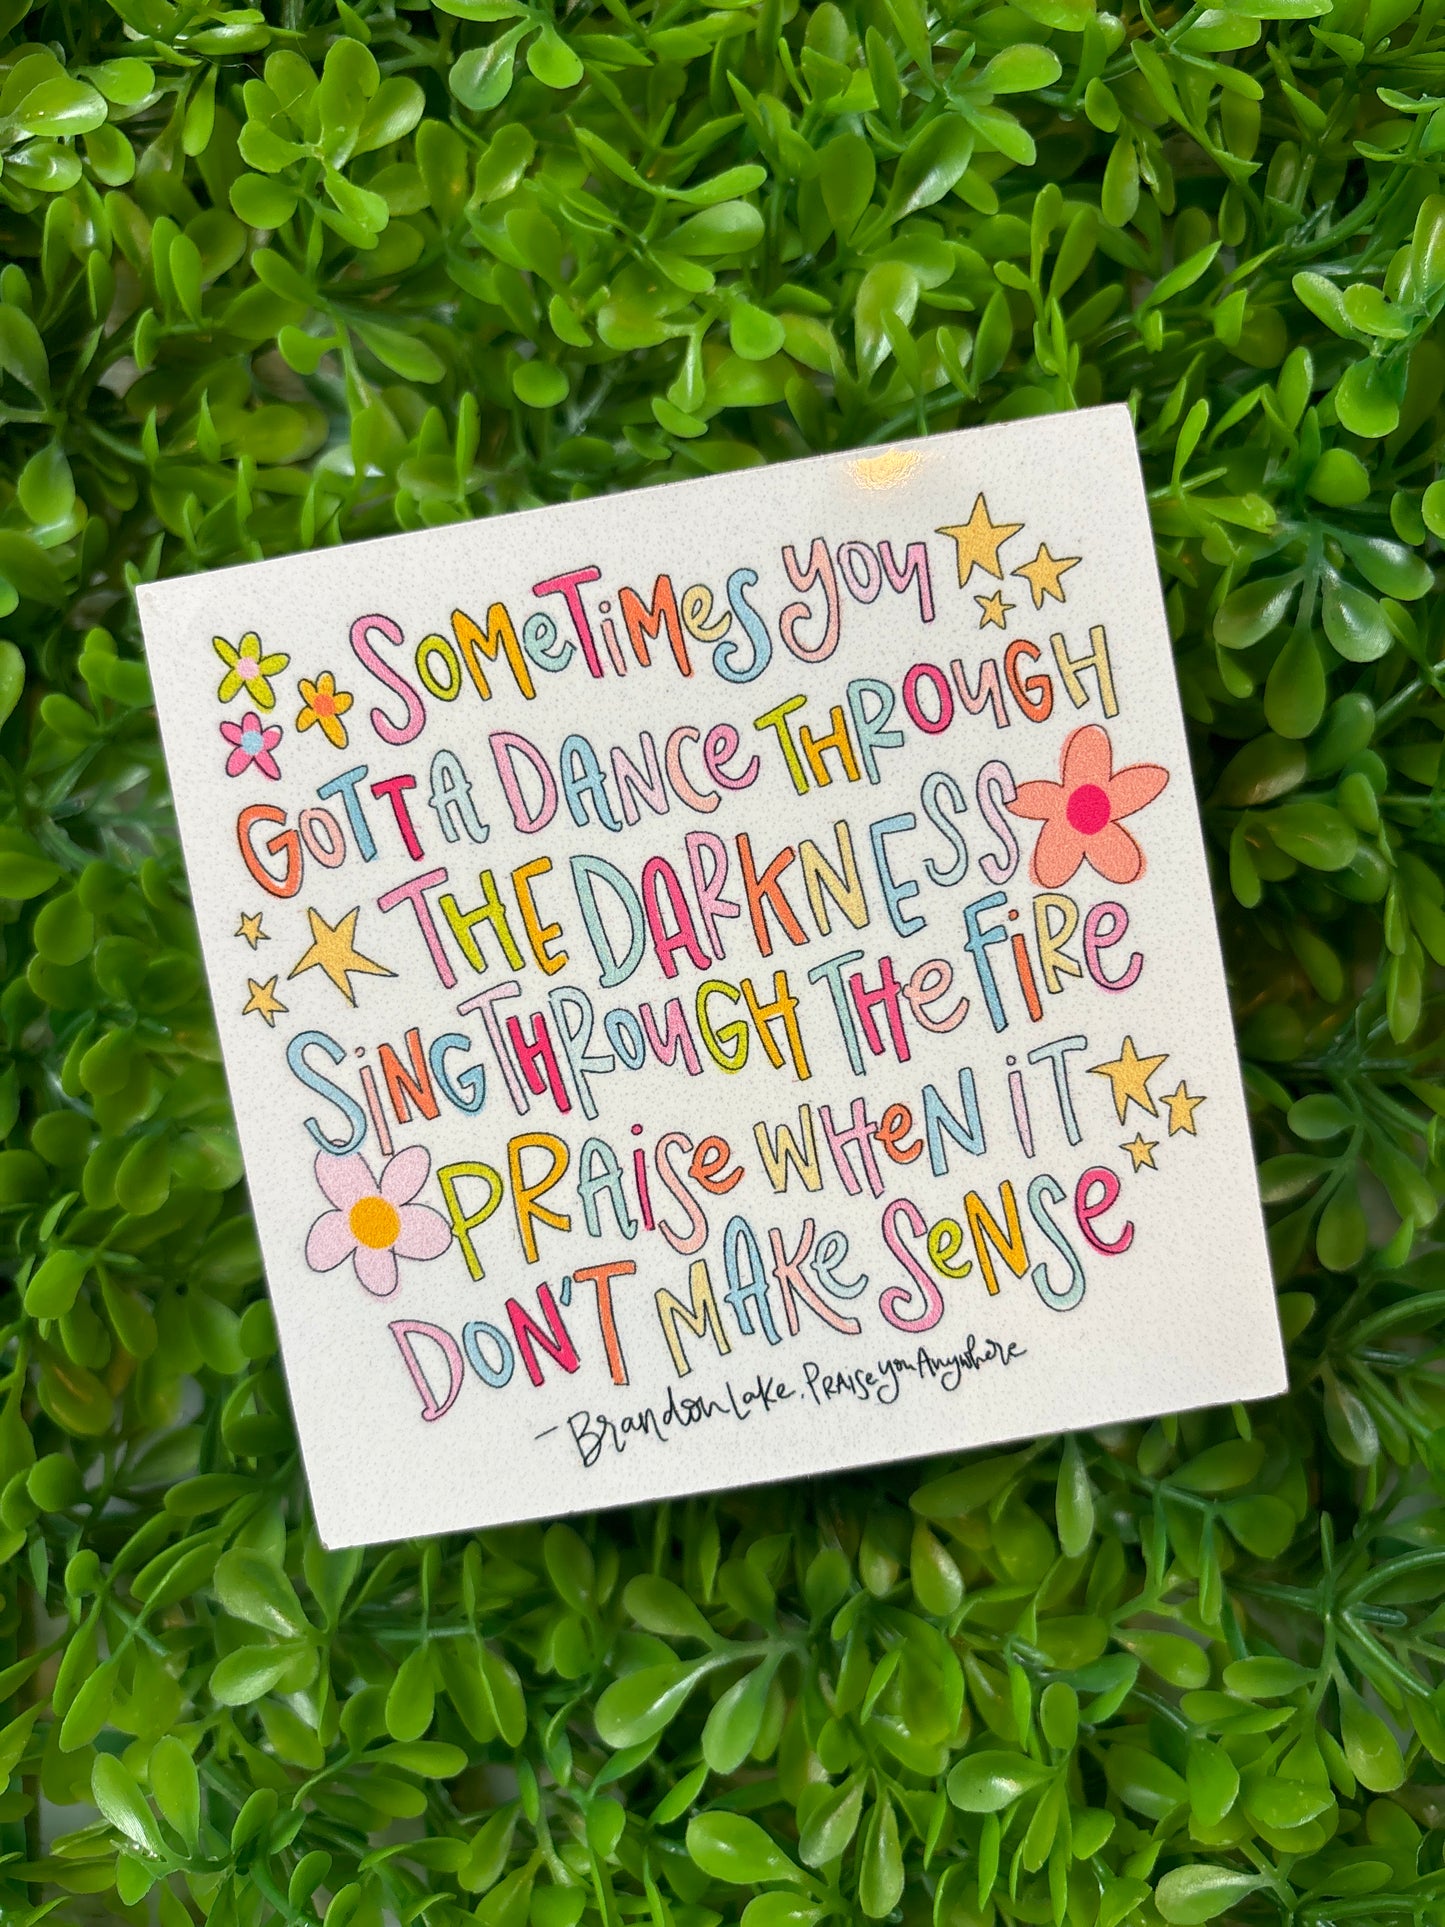 SOMETIMES YOU
GOTTA DANCE THROUGH
THE DARKNESS
SING THROUGH THE FIRE
PRAISE WHEN IT
DON'T MAKE SENSE
- Brandon Lake, Praise You Anywhere